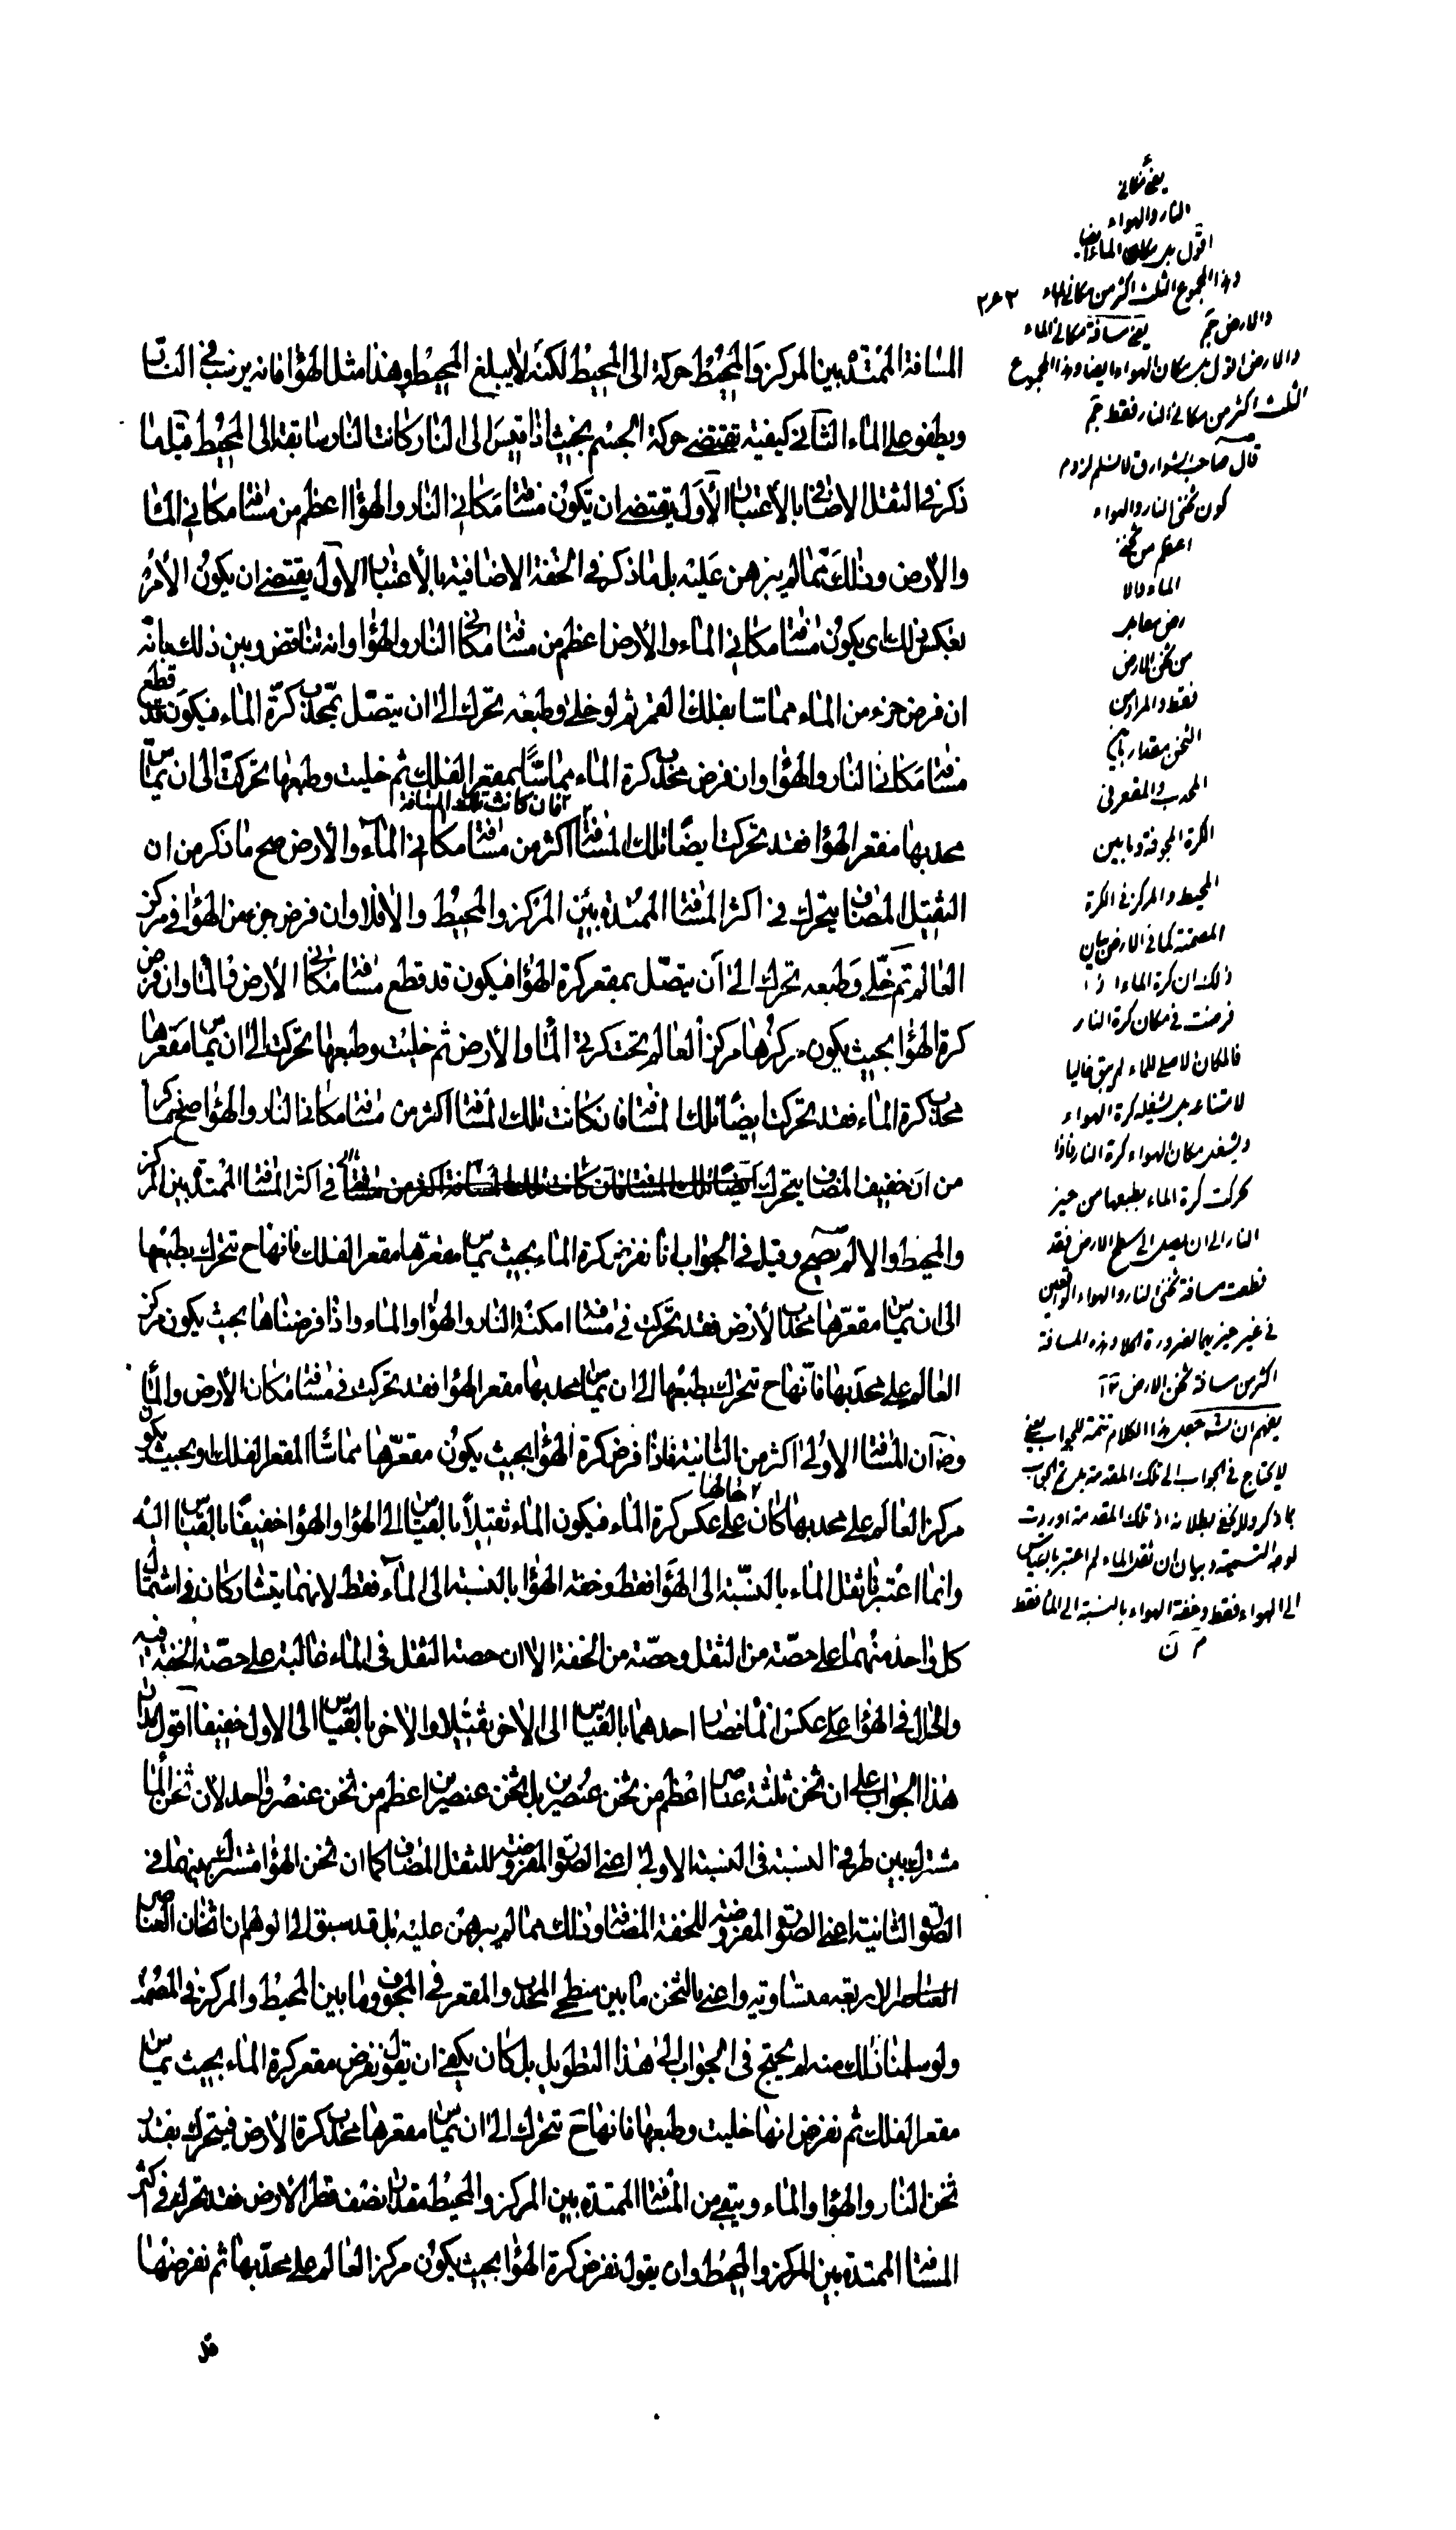 المسافة الممتدة بين المركز والمحيط حركة الى المحيط لكنه لا يبلغ المحيط وهذا مثل الهواء فانه يرسب في النار
ويطفو على الماء الثاني كيفية يقتضى حركة الجسم بحيث اذا قيس الى النار كانت النار سابقة الى المحيط قيل ما
ذكر في الثقل الاضافي بالاعتبار الأول يقتضى ان يكون مسافتا مكاني النار والهواء اعظم من مسافتا مكاني الماء
والأرض وذلك مما لم يبرهن عليه بل ما ذكر في الخفة الاضافية بالأعتبار الأول يقتضى ان يكون الأمر
بعكس ذلك اى يكون مسافتا مكاني الماء والأرض اعظم من مسافتا مكاني النار والهواء وانه تناقض وبين ذلك بانه
ان فرض جزء من الماء مماسا بفلك القمر ثم لو خلى وطبعه تحرك الى ان يتصل بمحدب كرة الماء فيكون قد قطع
مسافتا مكاني النار والهواء وان فرض محدب كرة الماء مماسا لمقعر الفلك ثم خليت وطبعها تحركت الى ان يماس
محدبها مقعر الهواء فقد تحركت ايضا تلك المسافة فان كانت تلك المسافة اكثر من مسافتا مكاني الماء والأرض صح ما ذكر من ان
الثقيل المضاف يتحرك في اكثر المسافة الممتدة بين المركز والمحيط والا فلا وان فرض جزء من الهواء في مركز
العالم ثم خلى وطبعه تحرك الى ان يتصل بمقعر كرة الهواء فيكون قد قطع مسافتا مكاني الأرض والماء وان فرض
كرة الهواء بحيث يكون مركزها مركز العالم تحت كرتي الماء والأرض ثم خليت وطبعها تحركت الى ان يماس مقعرها
محدب كرة الماء فقد تحركت ايضا تلك المسافة فان كانت تلك المسافة اكثر من مسافتا مكاني النار والهواء صح ما ذكر
من ان خفيف المضاف يتحرك في اكثر المسافة الممتدة بين المركز
والمحيط والا لم يصح وقيل في الجواب انا نفرض كرة الماء بحيث يماس مقعرها مقعر الفلك فانها ح تتحرك بطبعها
الى ان يماس مقعرها محدب الأرض فقد تحركت في مسافة امكنة النار والهواء والماء واذا فرضناها بحيث يكون مركز
العالم على محدبها فانها ح تتحرك بطبعها الى ان يماس محدبها مقعر الهواء فقد تحركت في مسافة مكان الأرض والماء
وض ان المسافة الاولى اكثر من الثانية فاذا فرض كرة الهواء بحيث يكون مقعرها مماسا لمقعر الفلك او بحيث يكون
مركز العالم على محدبها كان حالها على عكس كرة الماء فيكون الماء ثقيلا بالقياس الى الهواء والهواء خفيفا بالقياس اليه
وانما اعتبرنا ثقل الماء بالنسبة الى الهواء فقط وخفة الهواء بالنسبة الى الماء فقط لانهما يتشاركان في اشتمال
كل واحد منهما على حصة من الثقل وحصة من الخفة الا ان حصة الثقل في الماء غالبة على حصة الخفة فيه
والحال في الهواء على عكس احدهما بالقياس الى الاخر ثقيلا والاخر بالقياس الى الاول خفيفا اقول مدار
هذا الجواب على ان ثخن ثلثة عناصر اعظم من ثخن عنصرين بل ثخن عنصرين اعظم من ثخن عنصر واحد لان ثخن الماء
مشترك بين طرفي النسبة في النسبة الاولى اعنى الصورة المفروضة للثقل المضاف كما ان ثخن الهواء مشترك بينهما في
الصورة الثانية اعنى الصورة المفروضة للخفة المضافة وذلك مما لم يبرهن عليه بل قد سبق الى الوهم ان اثخان العناصر
العناصر الاربعة متساوية واعنى بالثخن ما بين سطحى المحدب والمقعر في المجوف وما بين المحيط والمركز في المصمت
ولو سلمنا ذلك منه لم يحتج في الجواب الى هذا التطويل بل كان يكفى ان يقول نفرض مقعر كرة الماء بحيث يماس
مقعر الفلك ثم نفرض انها خليت وطبعها فانها ح تتحرك الى ان يماس مقعرها محدب كرة الأرض فيتحرك بقدر
ثخن النار والهواء والماء ويبقى من المسافة الممتدة بين المركز والمحيط مقدار نصف قطر الأرض فقد تحرك في اكثر
المسافة الممتدة بين المركز والمحيط وان يقول نفرض كرة الهواء بحيث يكون مركز العالم على محدبها ثم نفرضها
قد
يعنى مكاني
النار والهواء
اقول بل مكان الماء ايضا
وهذا المجموع الثلث اكثر من مكاني الماء
والارض يعنى مسافة مكاني الماء
والارض اقول بل مكان الهواء ايضا وهذا المجموع
الثلث اكثر من مكاني النار فقط
قال صاحب الشوارق لا نسلم لزوم
كون ثخنى النار والهواء
اعظم من ثخنى
الماء والا
رض معا بل
من ثخن الارض
فقط والمراد من
الثخن مقدار ما بين
المحدب والمقعر في
الكرة المجوفة وما بين
المحيط والمركز في الكرة
المصمتة كما في الارض بيان
ذلك ان كرة الماء اذا
فرضت في مكان كرة النار
فالمكان الاصلي للماء لم يبق خاليا
لامتناعه بل يشغله كرة الهواء
ويشغل مكان الهواء كرة النار فاذا
تحركت كرة الماء بطبعها من حيز
النار الى ان يصل الى سطح الارض فقد
قطعت مسافة ثخنى النار والهواء الواقعين
في غير حيزيهما لضرورة الخلاء وهذه المسافة
اكثر من مسافة ثخن الارض
يفهم ان جعل هذا الكلام تتمة للجواب يعنى
لا يحتاج في الجواب الى تلك المقدمة بل تم الجواب
بما ذكر ولا يخفى بطلانه اذ تلك المقدمة اوردت
لوجه التسمية وبيان ان ثقل الماء لم اعتبر بالقياس
الى الهواء فقط وخفة الهواء بالنسبة الى الماء فقط
م ن